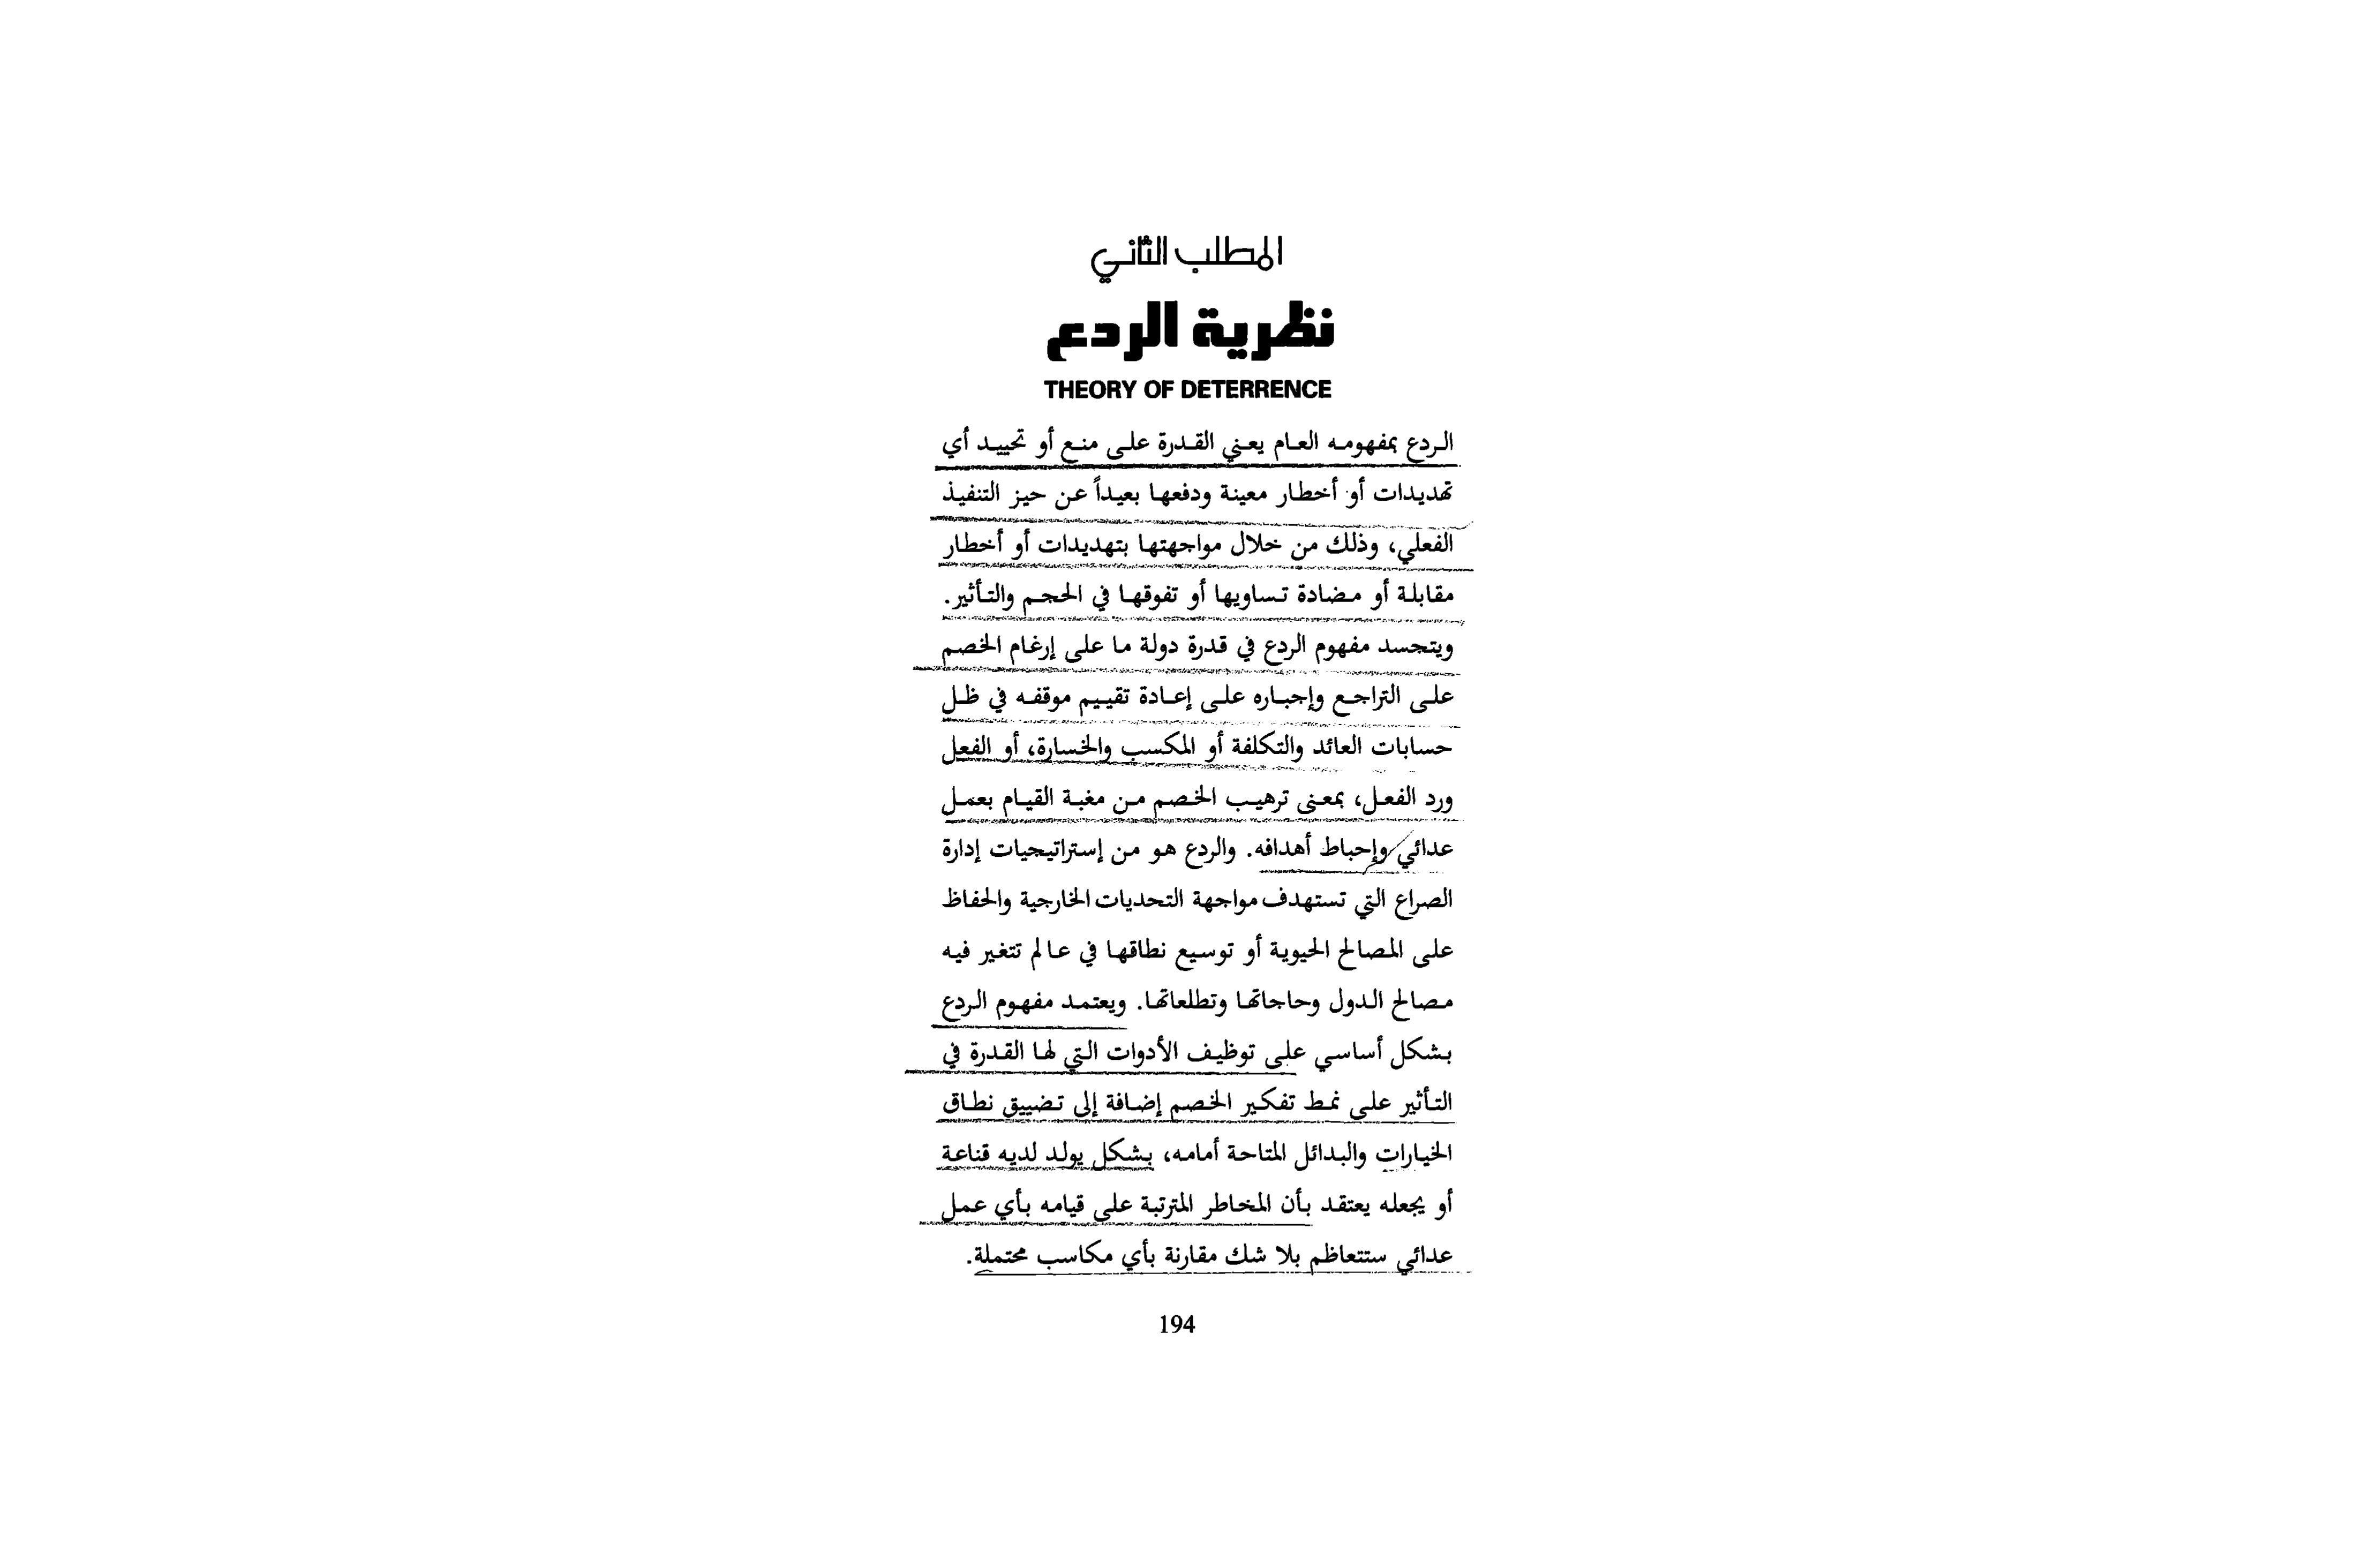 المطلب الثاني
نظرية الردع
THEORY OF DETERRENCE
الردع بمفهومه العام يعني القدرة على منع أو تحييد أي
تهديدات أو أخطار معينة ودفعها بعيداً عن حيز التنفيذ
الفعلي، وذلك من خلال مواجهتها بتهديدات أو أخطار
مقابلة أو مضادة تساويها أو تفوقها في الحجم والتأثير.
ويتجسد مفهوم الردع في قدرة دولة ما على إرغام الخصم
على التراجع وإجباره على إعادة تقييم موقفه في ظل
حسابات العائد والتكلفة أو المكسب والخسارة، أو الفعل
ورد الفعل، بمعنى ترهيب الخصم من مغبة القيام بعمل
عدائي وإحباط أهدافه. والردع هو من إستراتيجيات إدارة
الصراع التي تستهدف مواجهة التحديات الخارجية والحفاظ
على المصالح الحيوية أو توسيع نطاقها في عالم تتغير فيه
مصالح الدول وحاجاتها وتطلعاتها. ويعتمد مفهوم الردع
بشكل أساسي على توظيف الأدوات التي لها القدرة في
التأثير على نمط تفكير الخصم إضافة إلى تضييق نطاق
الخيارات والبدائل المتاحة أمامه، بشكل يولد لديه قناعة
أو يجعله يعتقد بأن المخاطر المترتبة على قيامه بأي عمل
عدائي ستتعاظم بلا شك مقارنة بأي مكاسب محتملة.
194